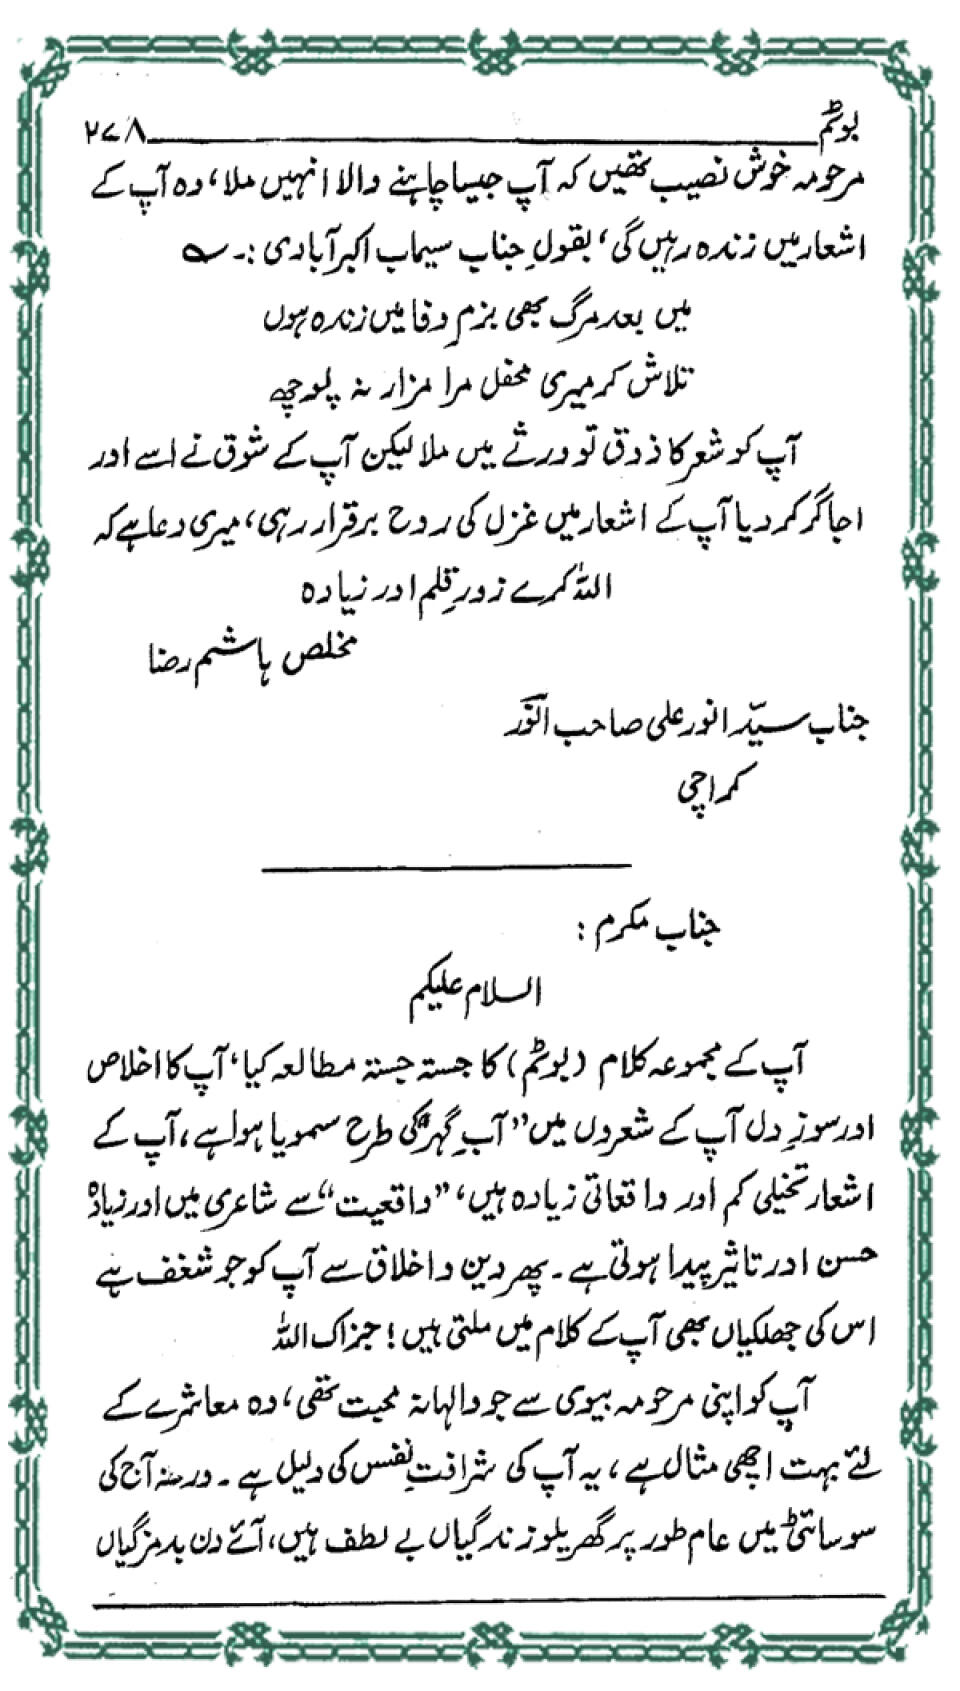 بوئم ۲۷۸
مرحومہ خوش نصیب تھیں کہ آپ جیسا چاہنے والا انہیں ملا، وہ آپ کے
اشعار میں زندہ رہیں گی، بقولِ جناب سیماب اکبر آبادی :۔ ؎
میں بعد مرگ بھی بزمِ وفا میں زندہ ہوں
تلاش کر میری محفل مرا مزار نہ پوچھ
آپ کو شعر کا ذوق تو ورثے میں ملا لیکن آپ کے شوق نے اسے اور
اجاگر کر دیا آپ کے اشعار میں غزل کی روح برقرار رہی، میری دعا ہے کہ
اللہ کرے زورِ قلم اور زیادہ
مخلص ہاشم رضا
جناب سیّد انور علی صاحب انوؔر
کراچی
جناب مکرم :
السلام علیکم
آپ کے مجموعہ کلام (بوئم) کا جستہ جستہ مطالعہ کیا، آپ کا اخلاص
اور سوزِ دل آپ کے شعروں میں "آبِ گہر" کی طرح سمویا ہوا ہے، آپ کے
اشعار تخیلی کم اور واقعاتی زیادہ ہیں، "واقعیت" سے شاعری میں اور زیادہ
حسن اور تاثیر پیدا ہوتی ہے ۔ پھر دین و اخلاق سے آپ کو جو شغف ہے
اس کی جھلکیاں بھی آپ کے کلام میں ملتی ہیں ! جزاک اللہ
آپ کو اپنی مرحومہ بیوی سے جو والہانہ محبت تھی، وہ معاشرے کے
لئے بہت اچھی مثال ہے، یہ آپ کی شرافتِ نفس کی دلیل ہے ۔ ورنہ آج کی
سوسائٹی میں عام طور پر گھریلو زندگیاں بے لطف ہیں، آئے دن بدمزگیاں